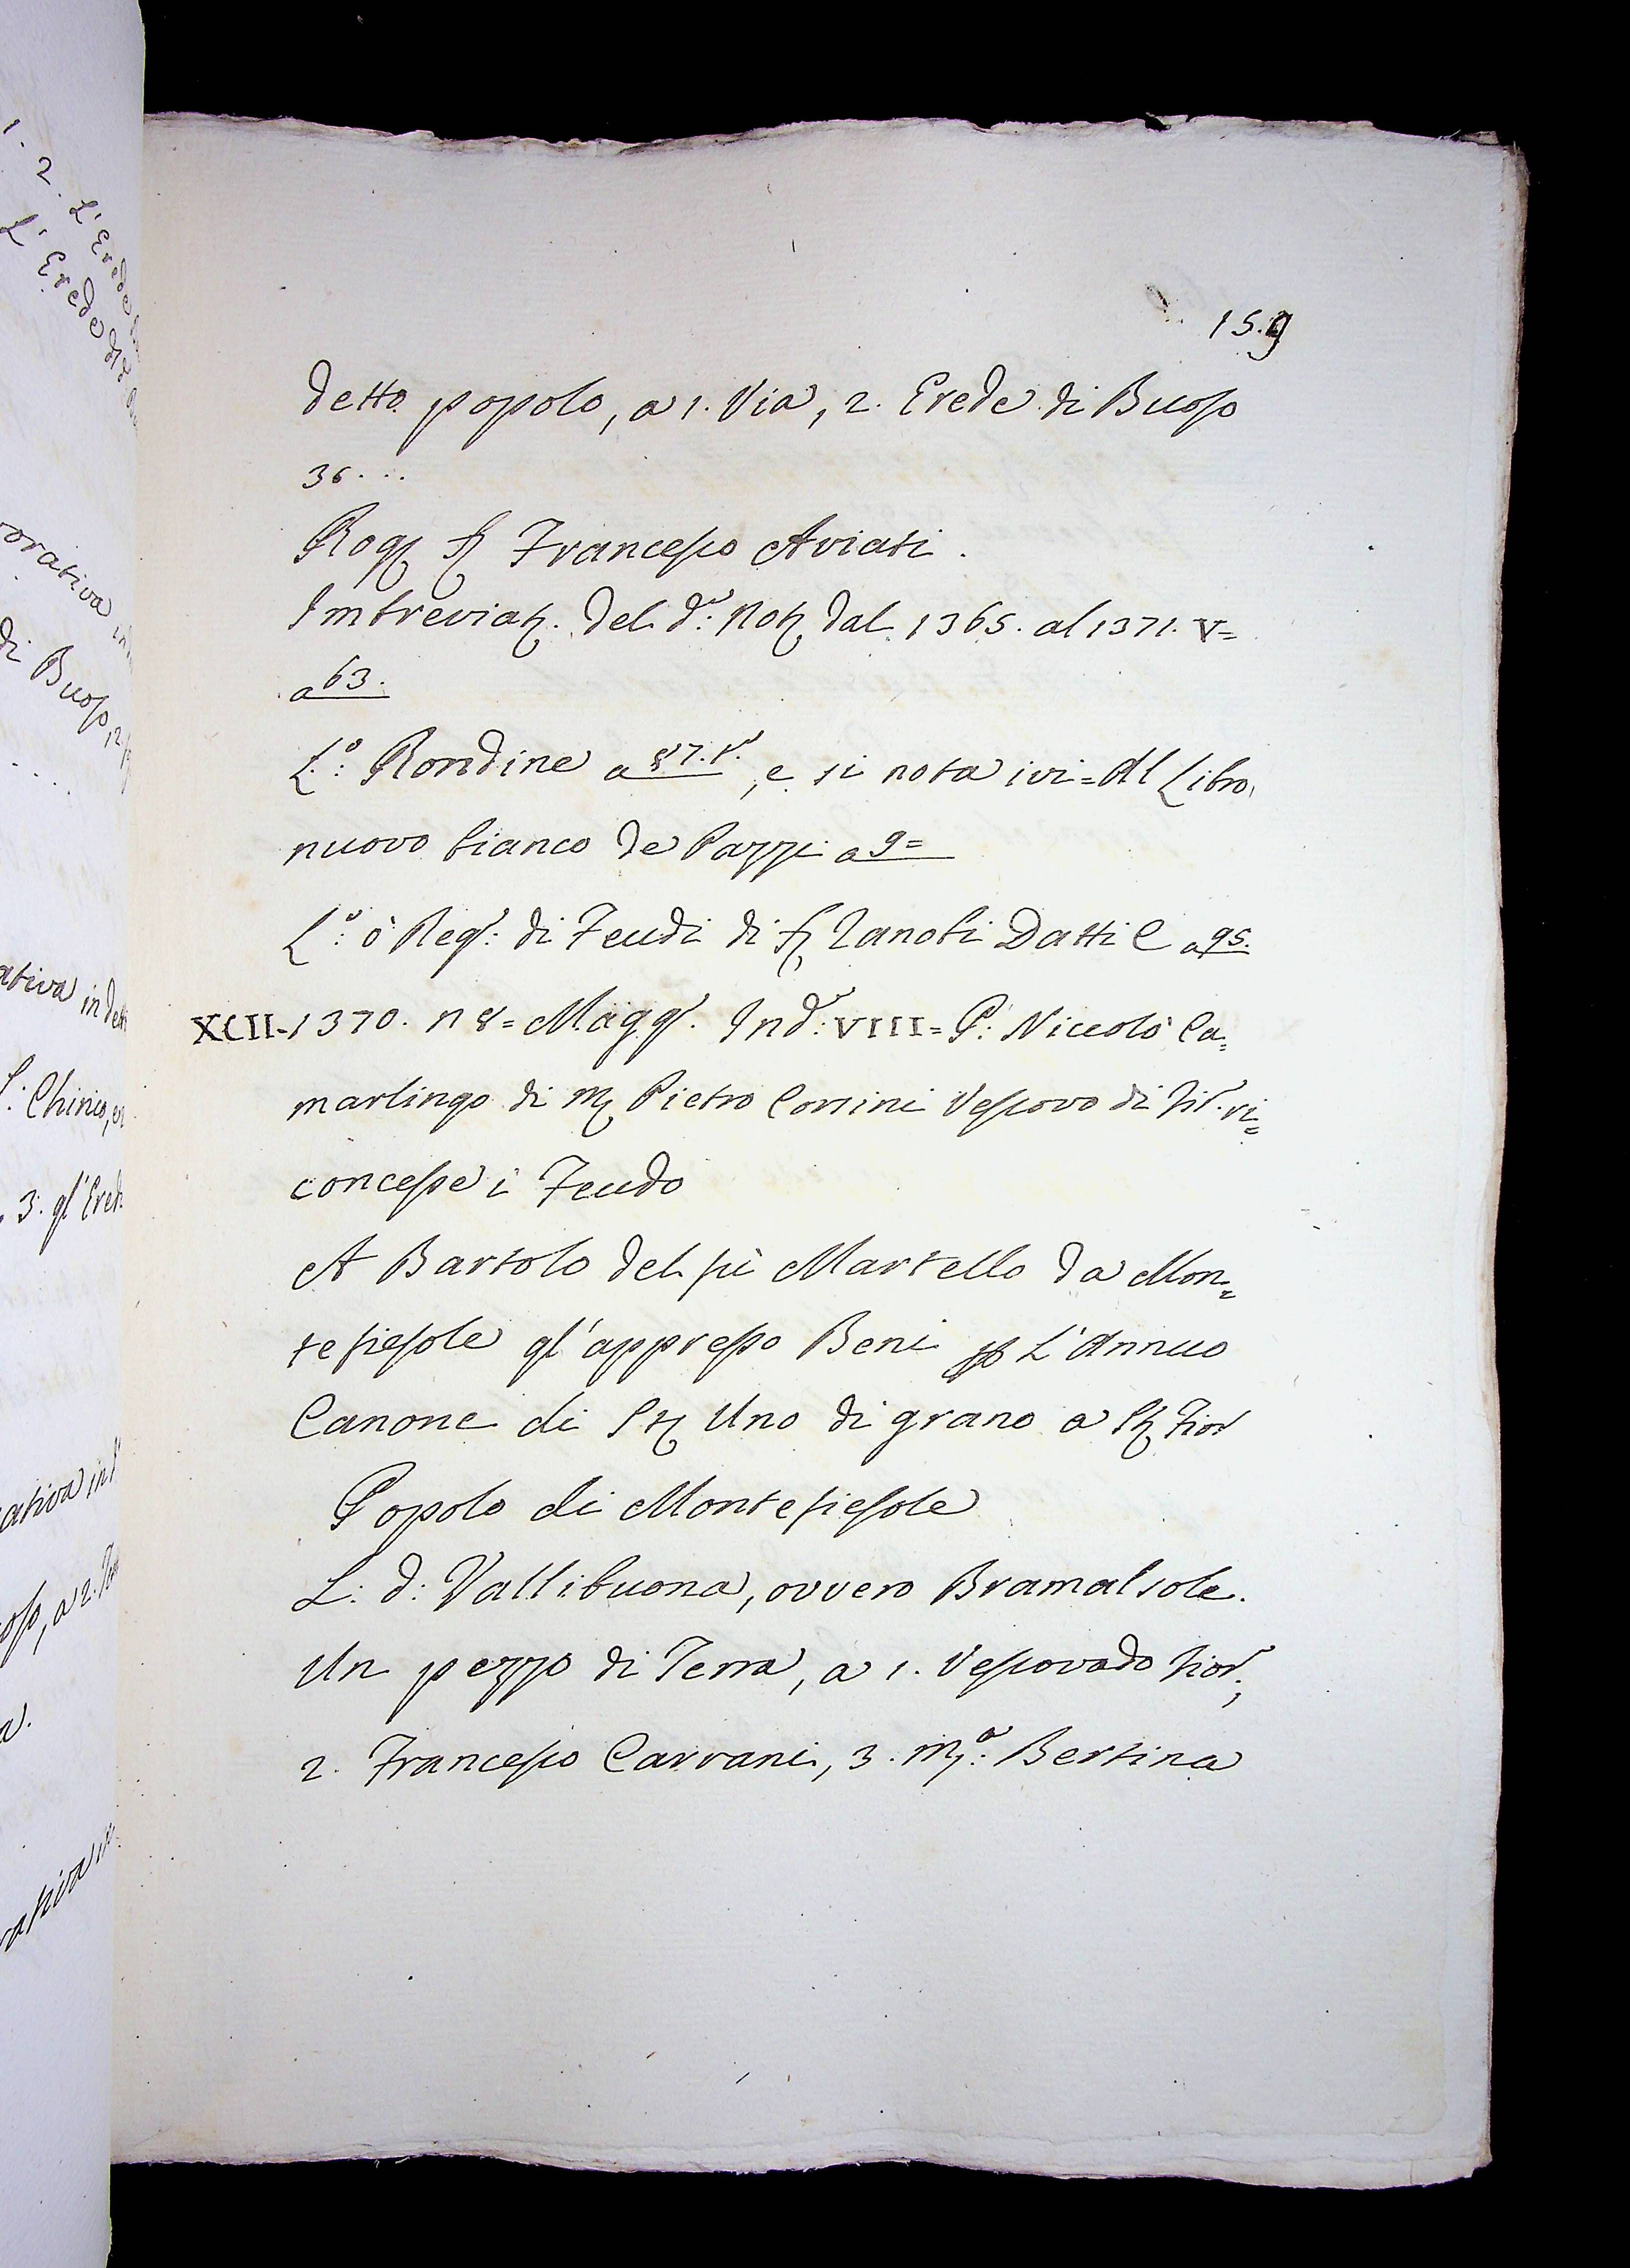 159
detto popolo, a 1. Via, 2. Erede di Buoso
36...
Rog. S. Francesco Aviati.
Imbreviaz. del d.º: Not. dal 1365. al 1371. V=
a 63.
L.º: Rondine a 87. t.º, e si nota ivi = Al Libro
nuovo bianco de Pazzi a 9=
L.º: ò Reg.º: di Feudi di S. Zanobi Datti C a 95.
XCII-1370. n 8= Magg.º Ind.º: VIII= P: Niccolò Ca=
marlingo di M. Pietro Corsini Vescovo di Fir. ri=
concesse i Feudo
A Bartolo del fù Martello da Mon=
tefiesole gl'appresso Beni p L'Annuo
Canone di St. Uno di grano a St. Fior
Popolo di Montefiesole
L: d: Vallibuona, ovvero Bramalsole.
Un pezzo di Terra, a 1. Vescovado Fior.;
2. Francesco Carrani, 3. M.ª: Bertina